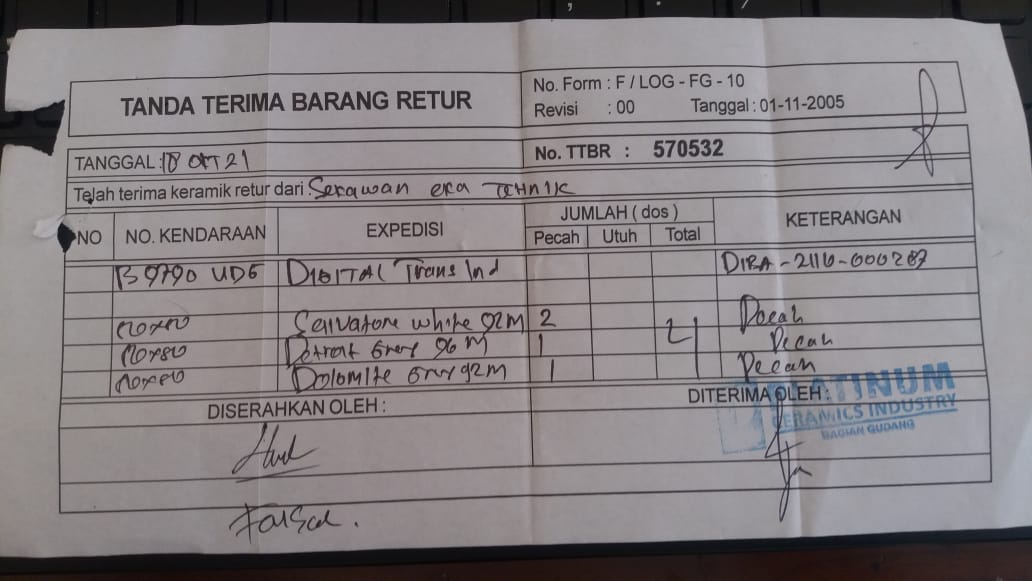 TANDA TERIMA BARANG RETUR
No. Form : F / LOG - FG - 10
Revisi : 00 Tanggal : 01-11-2005
TANGGAL : 18 OKT 21
No. TTBR : 570532
Telah terima keramik retur dari : Serawan era TEHNIK
NO NO. KENDARAAN EXPEDISI JUMLAH ( dos ) KETERANGAN
Pecah Utuh Total
DIGITAL Trans Ind
white 92M 2 Pecah
Detroit Grey 96 M 1 Pecah
Dolomite Grey 92M 1 Pecah
DISERAHKAN OLEH : DITERIMA OLEH :
PLATINUM
CERAMICS INDUSTRY
BAGIAN GUDANG
Faisal .